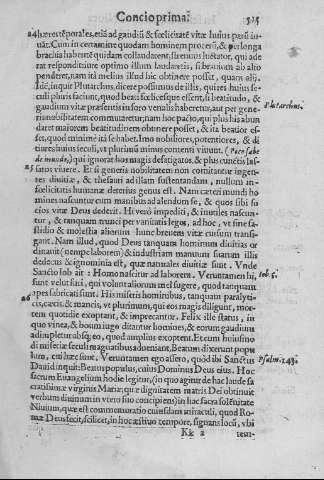 Concio prima. 525
24 hæc temporales, etiã ad gaudiũ & fœlicitatẽ vitæ huius parũ iu-
uãt. Cum in certamine quodam hominem procerũ, & perlonga
brachia habentẽ quidam collaudarent, strenuus luctator, qui ade
rat respondit iure optimo illum laudaretis, si brauium ab alto
penderet, nam ita melius illud hic obtinere posset, quam alij.
Idẽ, inquit Plutarchus, dicere possumus de illis, qui res huius se-
culi pluris faciunt, quod beati fœlicesque essent, si beatitudo, &
gaudium vitæ præsentis in foro venalis haberetur, aut per gene-
ri nobilitatem commutaretur, nam hoc pacto, qui plus his abun
daret maiorem beatitudinem obtinere posset, & ita beatior es-
set, quod minimè ita se habet. Imo nobiliores, potentiores, & di
tiores huius seculi, vt plurimũ minus contenti viuunt. (Pero sabe
de mundo,) qui ignorat hos magis defatigatos, & plus cunctis las-
25 satos viuere. Et si generis nobilitatem non comitantur ingen-
tes diuitiæ, & thesauri ad illam sustentandam, nullum in-
fœlicitatis humanæ deterius genus est. Nam cæteri mundi ho
mines nascuntur cum manibus ad alendum se, & quos sibi fa
cios vitæ Deus dedcrit. Hi verò impediti, & inutiles nascun-
tur, & tanquam trunci per vanitatis leges, ad hoc, vt sine fa-
stidio & molestia alienum hunc breuem vitæ cursum transi-
gant. Nam illud, quod Deus tanquam hominum diuitias or
dinauit (nempe laborem) & industriam manuum suarum illis
dedecus & ignominia est, quæ naturales diuitiæ sunt. Vnde
Sanctus Iob ait: Homo nascitur ad laborem. Veruntamen hi,
Iob. 5.
sunt velut fuci, qui volunt aliorum mel sugere, quod tanquam
apes fabricati sunt. His miseris hominibus, tanquam paralyti-
cis, cæcis, & mancis, vt plurimum, qui eos magis diligunt, mor-
tem quotidie exoptant, & imprecantur. Felix ille status, in
quo vinea, & boum iugo ditantur homines, & eorum gaudium
adimpletur absque eo, quod amplius exoptent. Et cum huiusmo
di miseriæ seculi magnatibus adueniant. Beatum dixerunt popu
lum, cui hæc sunt. Veruntamen ego assero, quòd ibi Sanctus
Psalm. 143.
Dauid inquit: Beatus populus, cuius Dominus Deus eius. Hoc
sacrum Euangelium hodie legitur, (in quo agitur de hac laude sa
cratissimæ virginis Mariæ, quæ dignitatem matris Dei obtinuit
verbum diuinum in vtero suo concipiens) in hac sacra solẽnitate
Niuium, quæ est commemoratio cuiusdam miraculi, quod Ro-
mæ Deus fecit, scilicet, in hoc æstiuo tempore, signans locũ, vbi
Kk 2
Plutarchus.